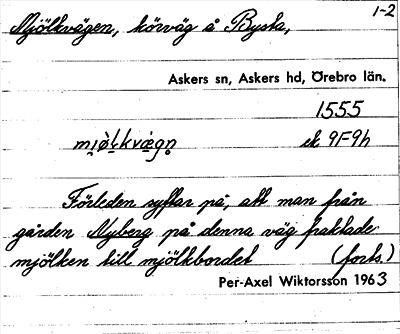 1-2
Mjölkvägen, körväg å Bysta,
Askers sn, Askers hd, Örebro län.
1555
mjø̀lkvægn̥ ek 9F9h
Förleden syftar på, att man från
gården Nyberg på denna väg fraktade
mjölken till mjölkbordet (forts.)
Per-Axel Wiktorsson 1963